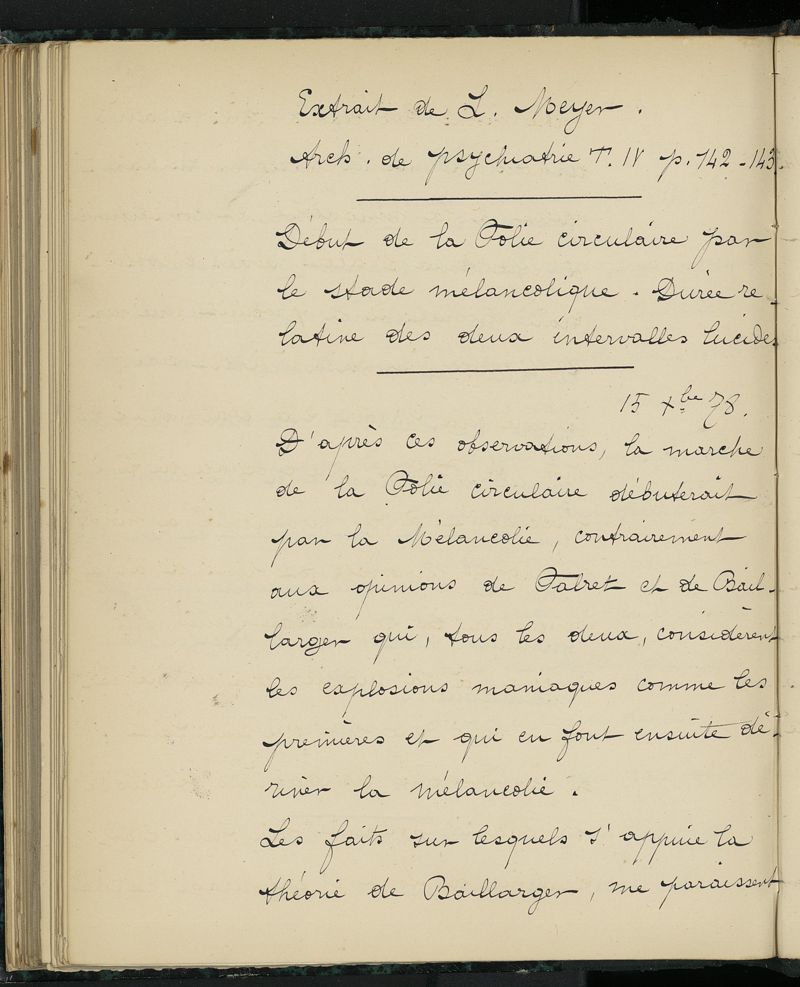 Extrait de L. Meyer.
Arch. de psychiatrie T. IV p. 142-143.
Début de la Folie circulaire par
le stade mélancolique. Durée re-
lative des deux intervalles lucides
15 Xbre 78.
D'après ces observations, la marche
de la Folie circulaire débuterait
par la Mélancolie, contrairement
aux opinions de Falret et de Bail-
larger qui, tous les deux, considèrent
les explosions maniaques comme les
premières et qui en font ensuite dé-
river la mélancolie.
Les faits sur lesquels s'appuie la
théorie de Baillarger, me paraissent